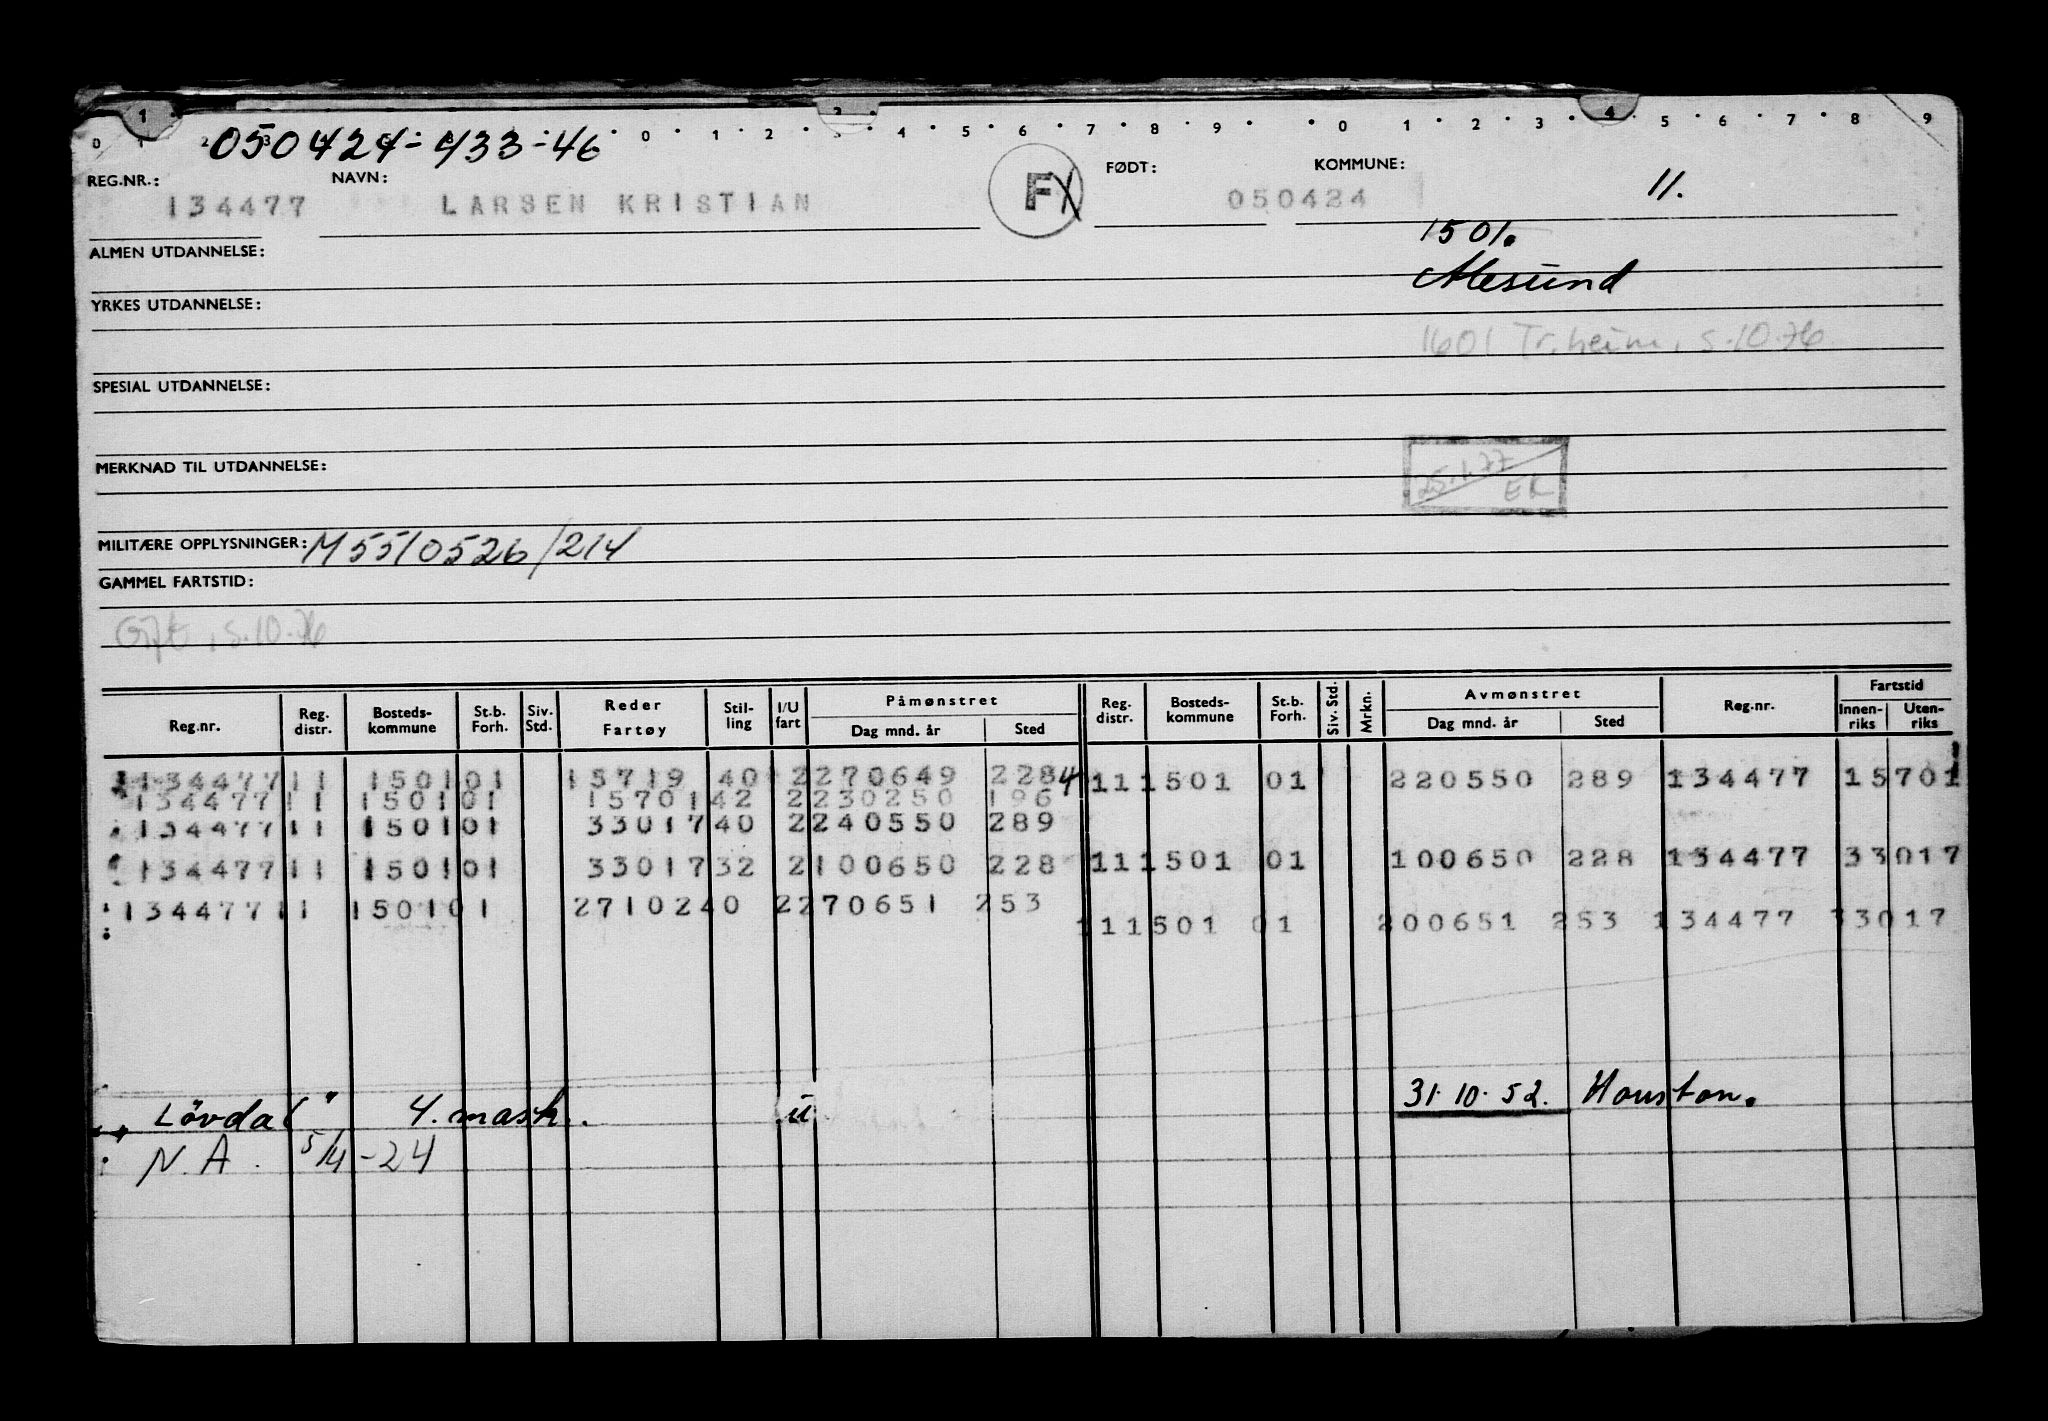 1 2 4
0 1 2 3 0 1 2 3 4 5 6 7 8 9 0 1 2 3 5 6 7 8 9
050424-433-46
REG.NR.: NAVN: F FØDT: KOMMUNE:
134477 LARSEN KRISTIAN 050424 11.
1501.
ALMEN UTDANNELSE:
Alesund
YRKES UTDANNELSE:
1601 Tr.heim, s.10.76
SPESIAL UTDANNELSE:
MERKNAD TIL UTDANNELSE:
25.1.77
EK
MILITÆRE OPPLYSNINGER: M5510526/214
GAMMEL FARTSTID:
Gift, s.10.76
Reg.nr. Reg. distr. Bosteds-kommune St.b. Forh. Siv. Std. Reder Fartøy Stil-ling I/U fart Påmønstret Dag mnd. år Sted Reg. distr. Bosteds-kommune St.b. Forh. Siv. Std. Mrkn. Avmønstret Dag mnd. år Sted Reg.nr. Fartstid Innen-riks Uten-riks
134477 11 1501 01 15719 40 2 270649 2284 11 1501 01 220550 289 134477 15701
134477 11 1501 01 15701 42 2 230250 196
134477 11 1501 01 33017 40 2 240550 289
134477 11 1501 01 33017 32 2 100650 228 11 1501 01 100650 228 134477 33017
134477 11 1501 01 27102 40 2 270651 253
11 1501 01 200651 253 134477 33017
"Lövdal" 4. mask. u 31.10.52. Houston.
N.A. 5/4-24